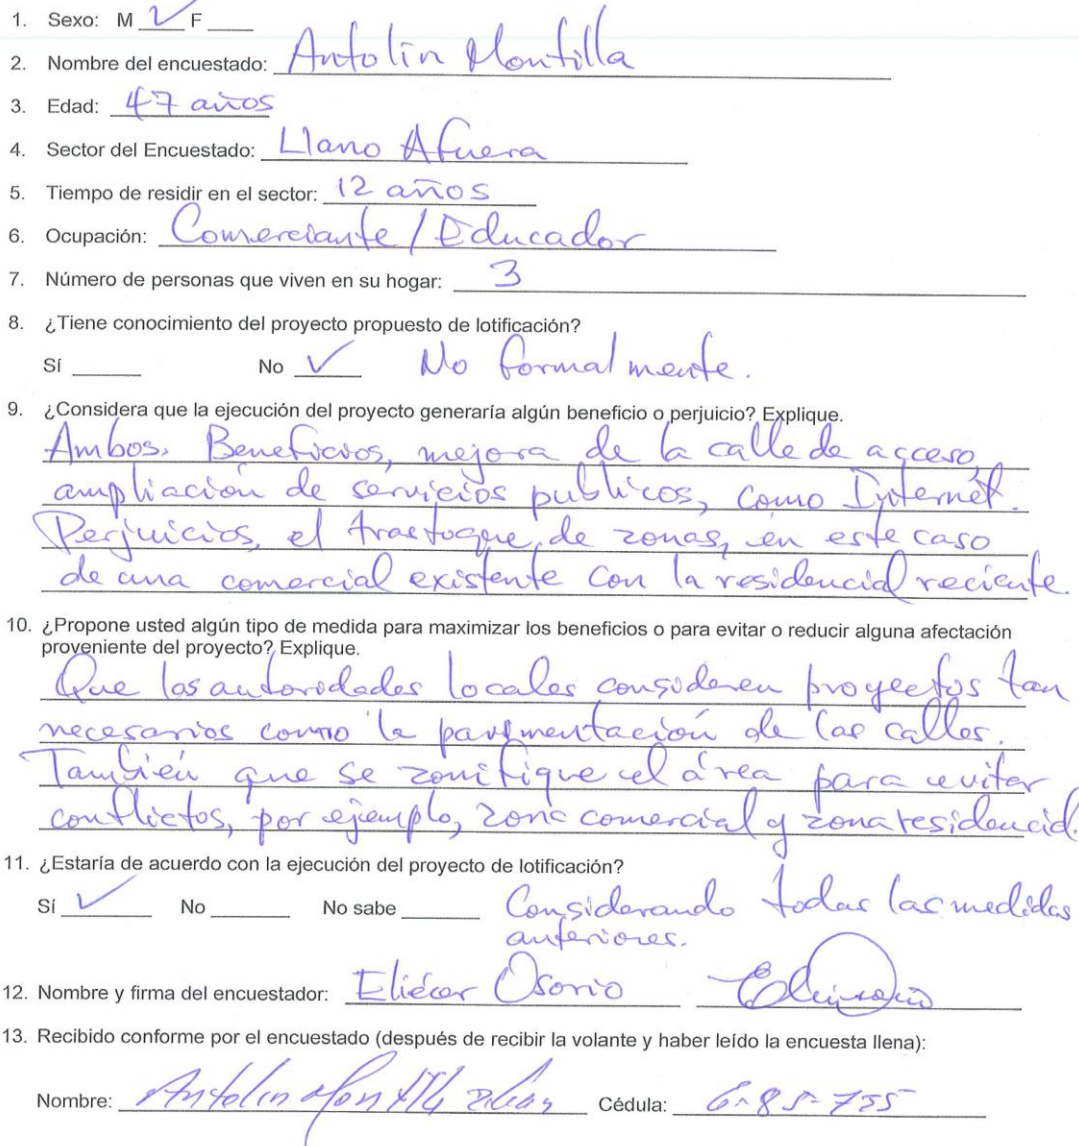 1. Sexo: M ✓ F ____
2. Nombre del encuestado: Antolin Montilla
3. Edad: 47 años
4. Sector del Encuestado: Llano Afuera
5. Tiempo de residir en el sector: 12 años
6. Ocupación: Comerciante / Educador
7. Número de personas que viven en su hogar: 3
8. ¿Tiene conocimiento del proyecto propuesto de lotificación?
Sí ____ No ✓ No formalmente.
9. ¿Considera que la ejecución del proyecto generaría algún beneficio o perjuicio? Explique.
Ambos. Beneficios, mejora de la calle de acceso,
ampliación de servicios publicos, como Internet.
Perjuicios, el trastoque de zonas, en este caso
de una comercial existente con la residencial reciente.
10. ¿Propone usted algún tipo de medida para maximizar los beneficios o para evitar o reducir alguna afectación
proveniente del proyecto? Explique.
Que las autoridades locales consideren proyectos tan
necesarios como la pavimentación de las calles.
También que se zonifique el área para evitar
conflictos, por ejemplo, zona comercial y zona residencial.
11. ¿Estaría de acuerdo con la ejecución del proyecto de lotificación?
Sí ✓ No ____ No sabe ____ Considerando todas las medidas
anteriores.
12. Nombre y firma del encuestador: Eliécer Osorio
13. Recibido conforme por el encuestado (después de recibir la volante y haber leído la encuesta llena):
Nombre: Antolin Montilla Cédula: 6-85-735